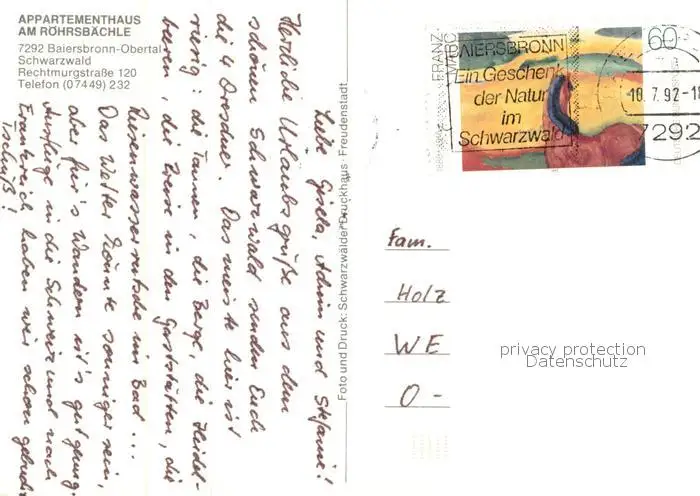 APPARTEMENTHAUS
AM RÖHRSBÄCHLE
7292 Baiersbronn-Obertal
Schwarzwald
Rechtmurgstraße 120
Telefon (07449) 232
Liebe Gisela, Achim und Stefanie!
Herzliche Urlaubsgrüße aus dem
schönen Schwarzwald senden Euch
die 4 Dresdner. Das meiste hier ist
riesig: die Tannen, die Berge, die Heidel-
beeren, die Preise in den Gaststätten, die
Riesenwasserrutsche im Bad...
Das Wetter könnte sonniger sein,
aber für's Wandern ist's gut genug.
Ausflüge in die Schweiz und nach
Frankreich haben wir schon
Tschüß!
Foto und Druck: Schwarzwälder Druckhaus · Freudenstadt
FRANZ
MARC
60
BAIERSBRONN
Ein Geschenk
der Natur
im
Schwarzwald
10.7.92-18
7292
Fam.
Holz
WE
O-
privacy protection
Datenschutz